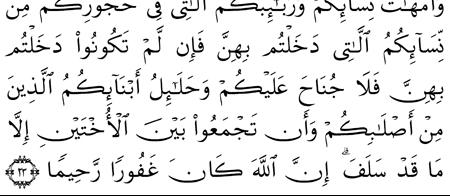 وَأُمَّهَٰتُ نِسَآئِكُمْ وَرَبَٰٓئِبُكُمُ ٱلَّٰتِى فِى حُجُورِكُم مِّن
نِّسَآئِكُمُ ٱلَّٰتِى دَخَلْتُم بِهِنَّ فَإِن لَّمْ تَكُونُوا۟ دَخَلْتُم
بِهِنَّ فَلَا جُنَاحَ عَلَيْكُمْ وَحَلَٰٓئِلُ أَبْنَآئِكُمُ ٱلَّذِينَ
مِنْ أَصْلَٰبِكُمْ وَأَن تَجْمَعُوا۟ بَيْنَ ٱلْأُخْتَيْنِ إِلَّا
مَا قَدْ سَلَفَ ۗ إِنَّ ٱللَّهَ كَانَ غَفُورًا رَّحِيمًا ٢٣